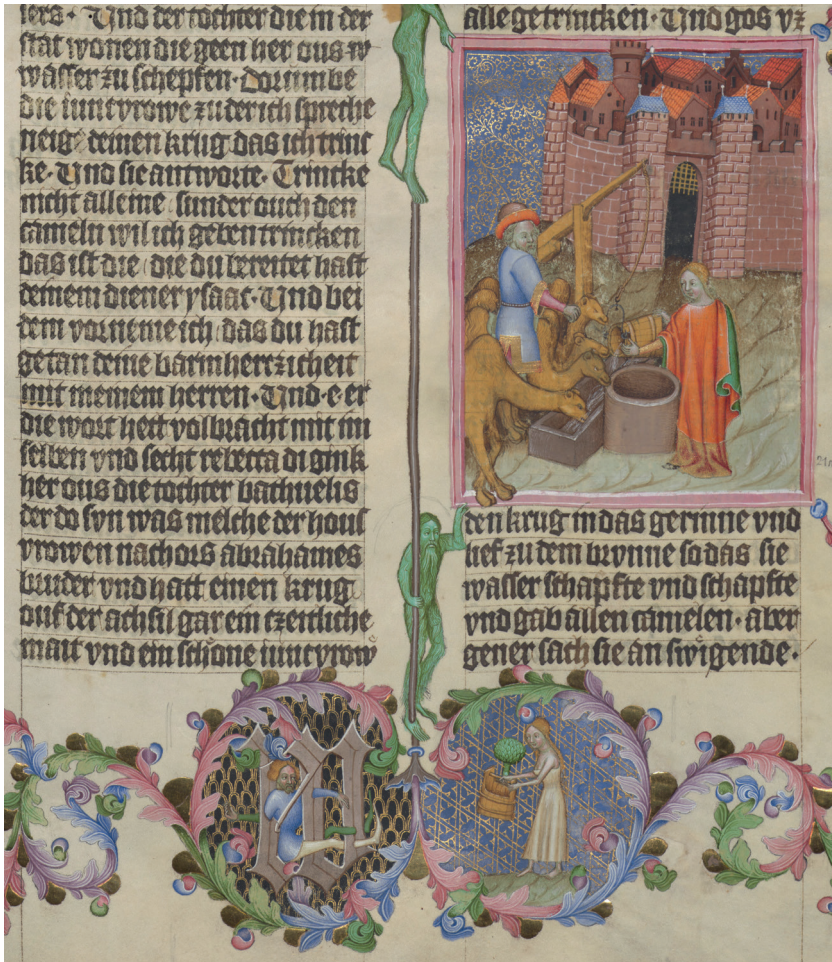 lers · Vnd der tochter die in der
stat wonen die geen her ous w
wasser zu schepfen · dorumbe
die iuncvrowe zu der ich spreche
neig deinen krug das ich trinc
ke · Vnd sie antworte · Trincke
nicht alleine sunder ouch den
cameln wil ich geben trincken
das ist die die du bereitet hast
deinem diener ysaac · Vnd bei
dem vorneme ich das du hast
getan deine barmherczicheit
mit meinem herren · Vnd · e er
die wort hett volbracht mit im
selben vnd secht rebecca di gink
her ous die tochter bathuelis
der do syn was melche der hous
vrowen nachors abrahames
bruder vnd hatt einen krug
ouf der achsil gar ein czeitliche
mait vnd ein schone iuncvrow
alle getrincken · Vnd gos vz
den krug in das gerinne vnd
lief zu dem brynne so das sie
wasser schapfte vnd schapfte
vnd gab allen camelen · aber
gener sach sie an swigende ·